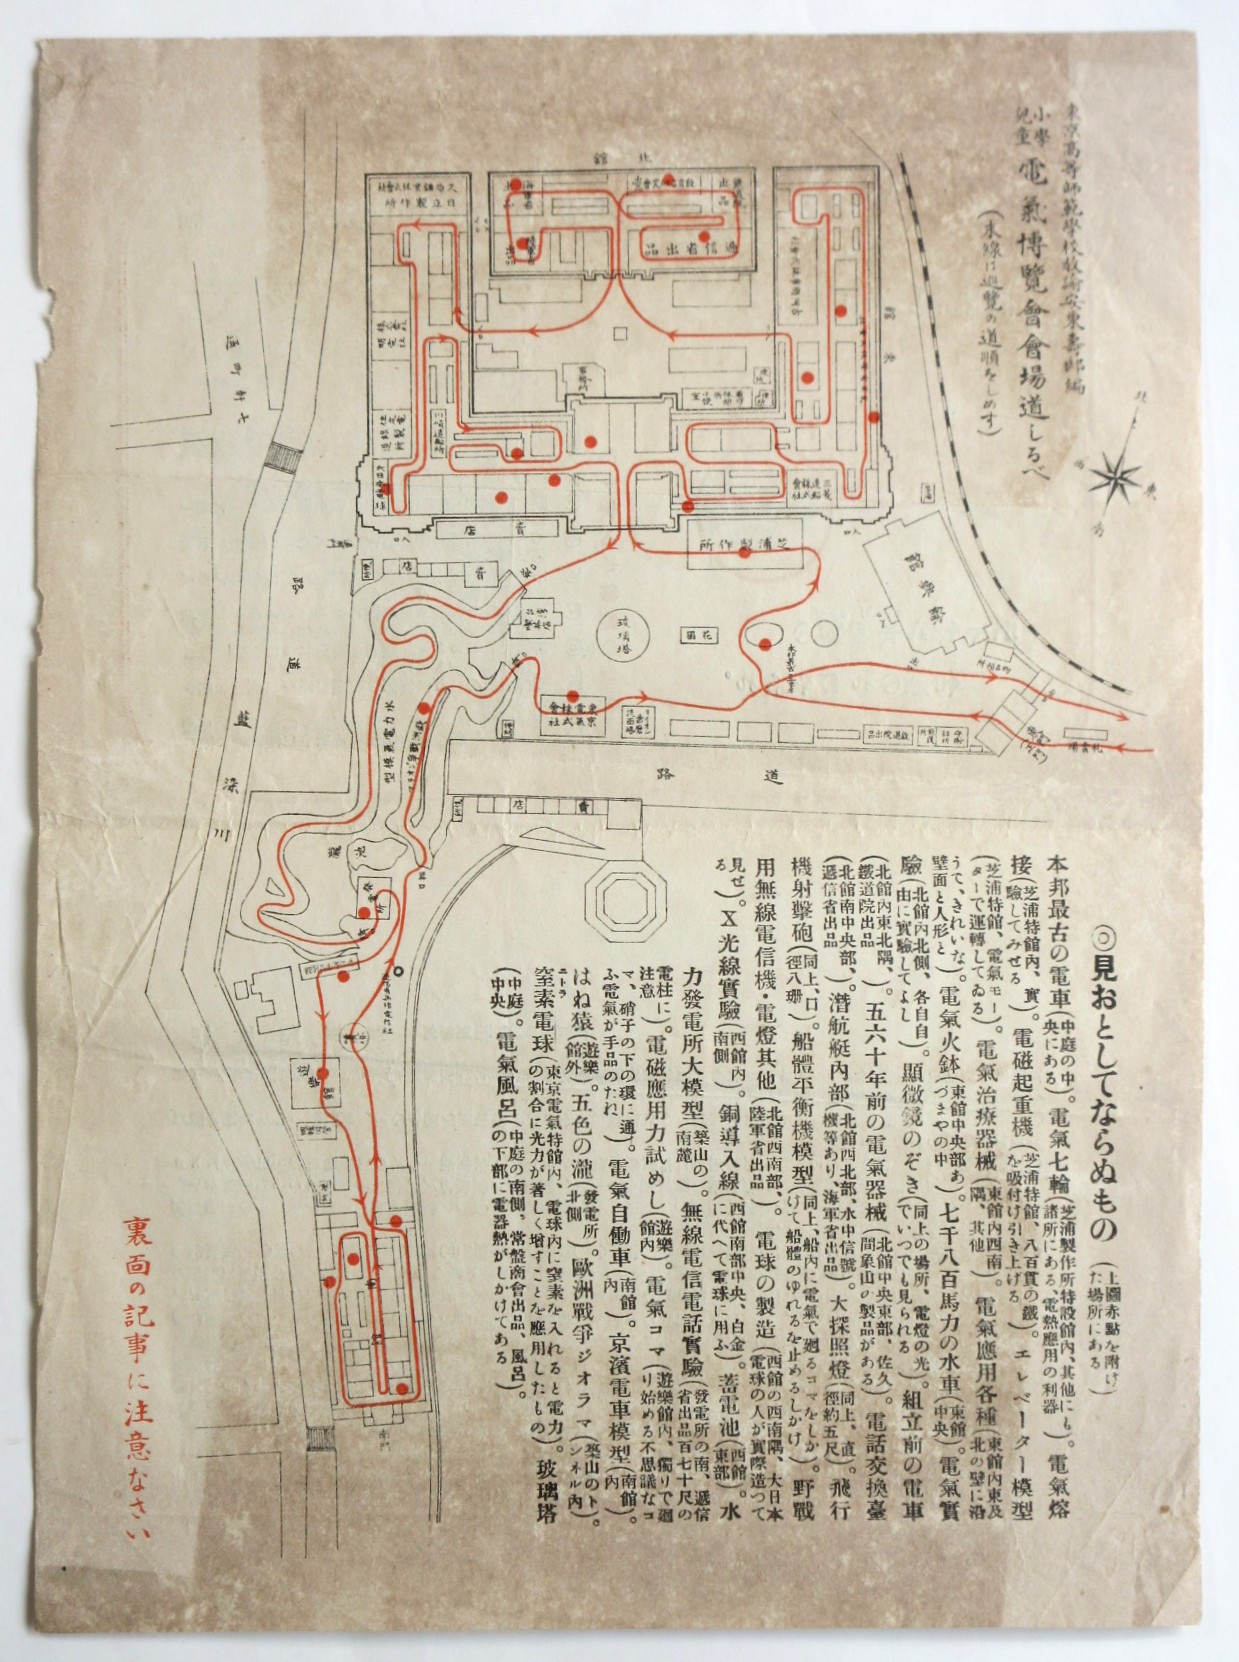 東京高等師範學校敎諭安東壽郎編
小學兒童 電氣博覽會會場道しるべ
(朱線は巡覽の道順をしめす)
北
東
南
西
北館
東館
日立製作所
遞信省出品
芝浦製作所
賣店
賣店
花園
玻璃塔
東京電氣株式會社
水力電氣模型
道路
賣店
池
發電所
南門
入口
◎見おとしてならぬもの (上圖赤點を附けた場所にある)
本邦最古の電車(中庭の中央にある)。電氣七輪(芝浦製作所特設館内、其他にも諸所にある、電熱應用の利器)。電氣熔
接(芝浦特館内、實驗してみせる)。電磁起重機(芝浦特館、八百貫の鐵を吸付け引き上げる)。エレベーター模型
(芝浦特館、電氣モーターで運轉してゐる)。電氣治療器械(東館内西南隅、其他)。電氣應用各種(東館内東及北の壁に沿
うて、きれいな壁面と人形と)。電氣火鉢(東館中央部あづまやの中)。七千八百馬力の水車(東館中央)。電氣實
驗(北館内北側、各自自由に實驗してよし)。顯微鏡のぞき(同上の場所、電燈の光でいつでも見られる)。組立前の電車
(北館内東北隅、鐵道院出品)。五六十年前の電氣器械(北館中央東部、佐久間象山の製品がある)。電話交換臺
(北館南中央部、遞信省出品)。潛航艇内部(北館西北部、水中信號機等あり、海軍省出品)。大探照燈(同上、直徑約五尺)。飛行
機射擊砲(同上、口徑八珊)。船體平衡機模型(同上、船内に電氣で廻るコマをしかけて船體のゆれるを止めるしかけ)。野戰
用無線電信機・電燈其他(北館西南部、陸軍省出品)。電球の製造(西館の西南隅、大日本電球の人が實際造つて
見せる)。X光線實驗(西館内南側)。銅導入線(西館南部中央、白金に代へて電球に用ふ)。蓄電池(西館東部)。水
力發電所大模型(築山の南麓)。無線電信電話實驗(發電所の南、遞信省出品百七十尺の
電柱に注意)。電磁應用力試めし(遊樂館内)。電氣コマ(遊樂館内、獨りで廻り始める不思議なコ
マ、硝子の下の環に通ふ電氣が手品のたね)。電氣自働車(南館内)。京濱電車模型(南館内)。
はね猿(遊樂館外)。五色の瀧(發電所北側)。歐洲戰爭ジオラマ(築山のトンネル内)。
窒素電球(東京電氣特館内、電球内に窒素を入れると電力の割合に光力が著しく增すことを應用したもの)玻璃塔
(中庭中央)。電氣風呂(中庭の南側、常盤商會出品、風呂の下部に電器熱がしかけてある)。
裏面の記事に注意なさい